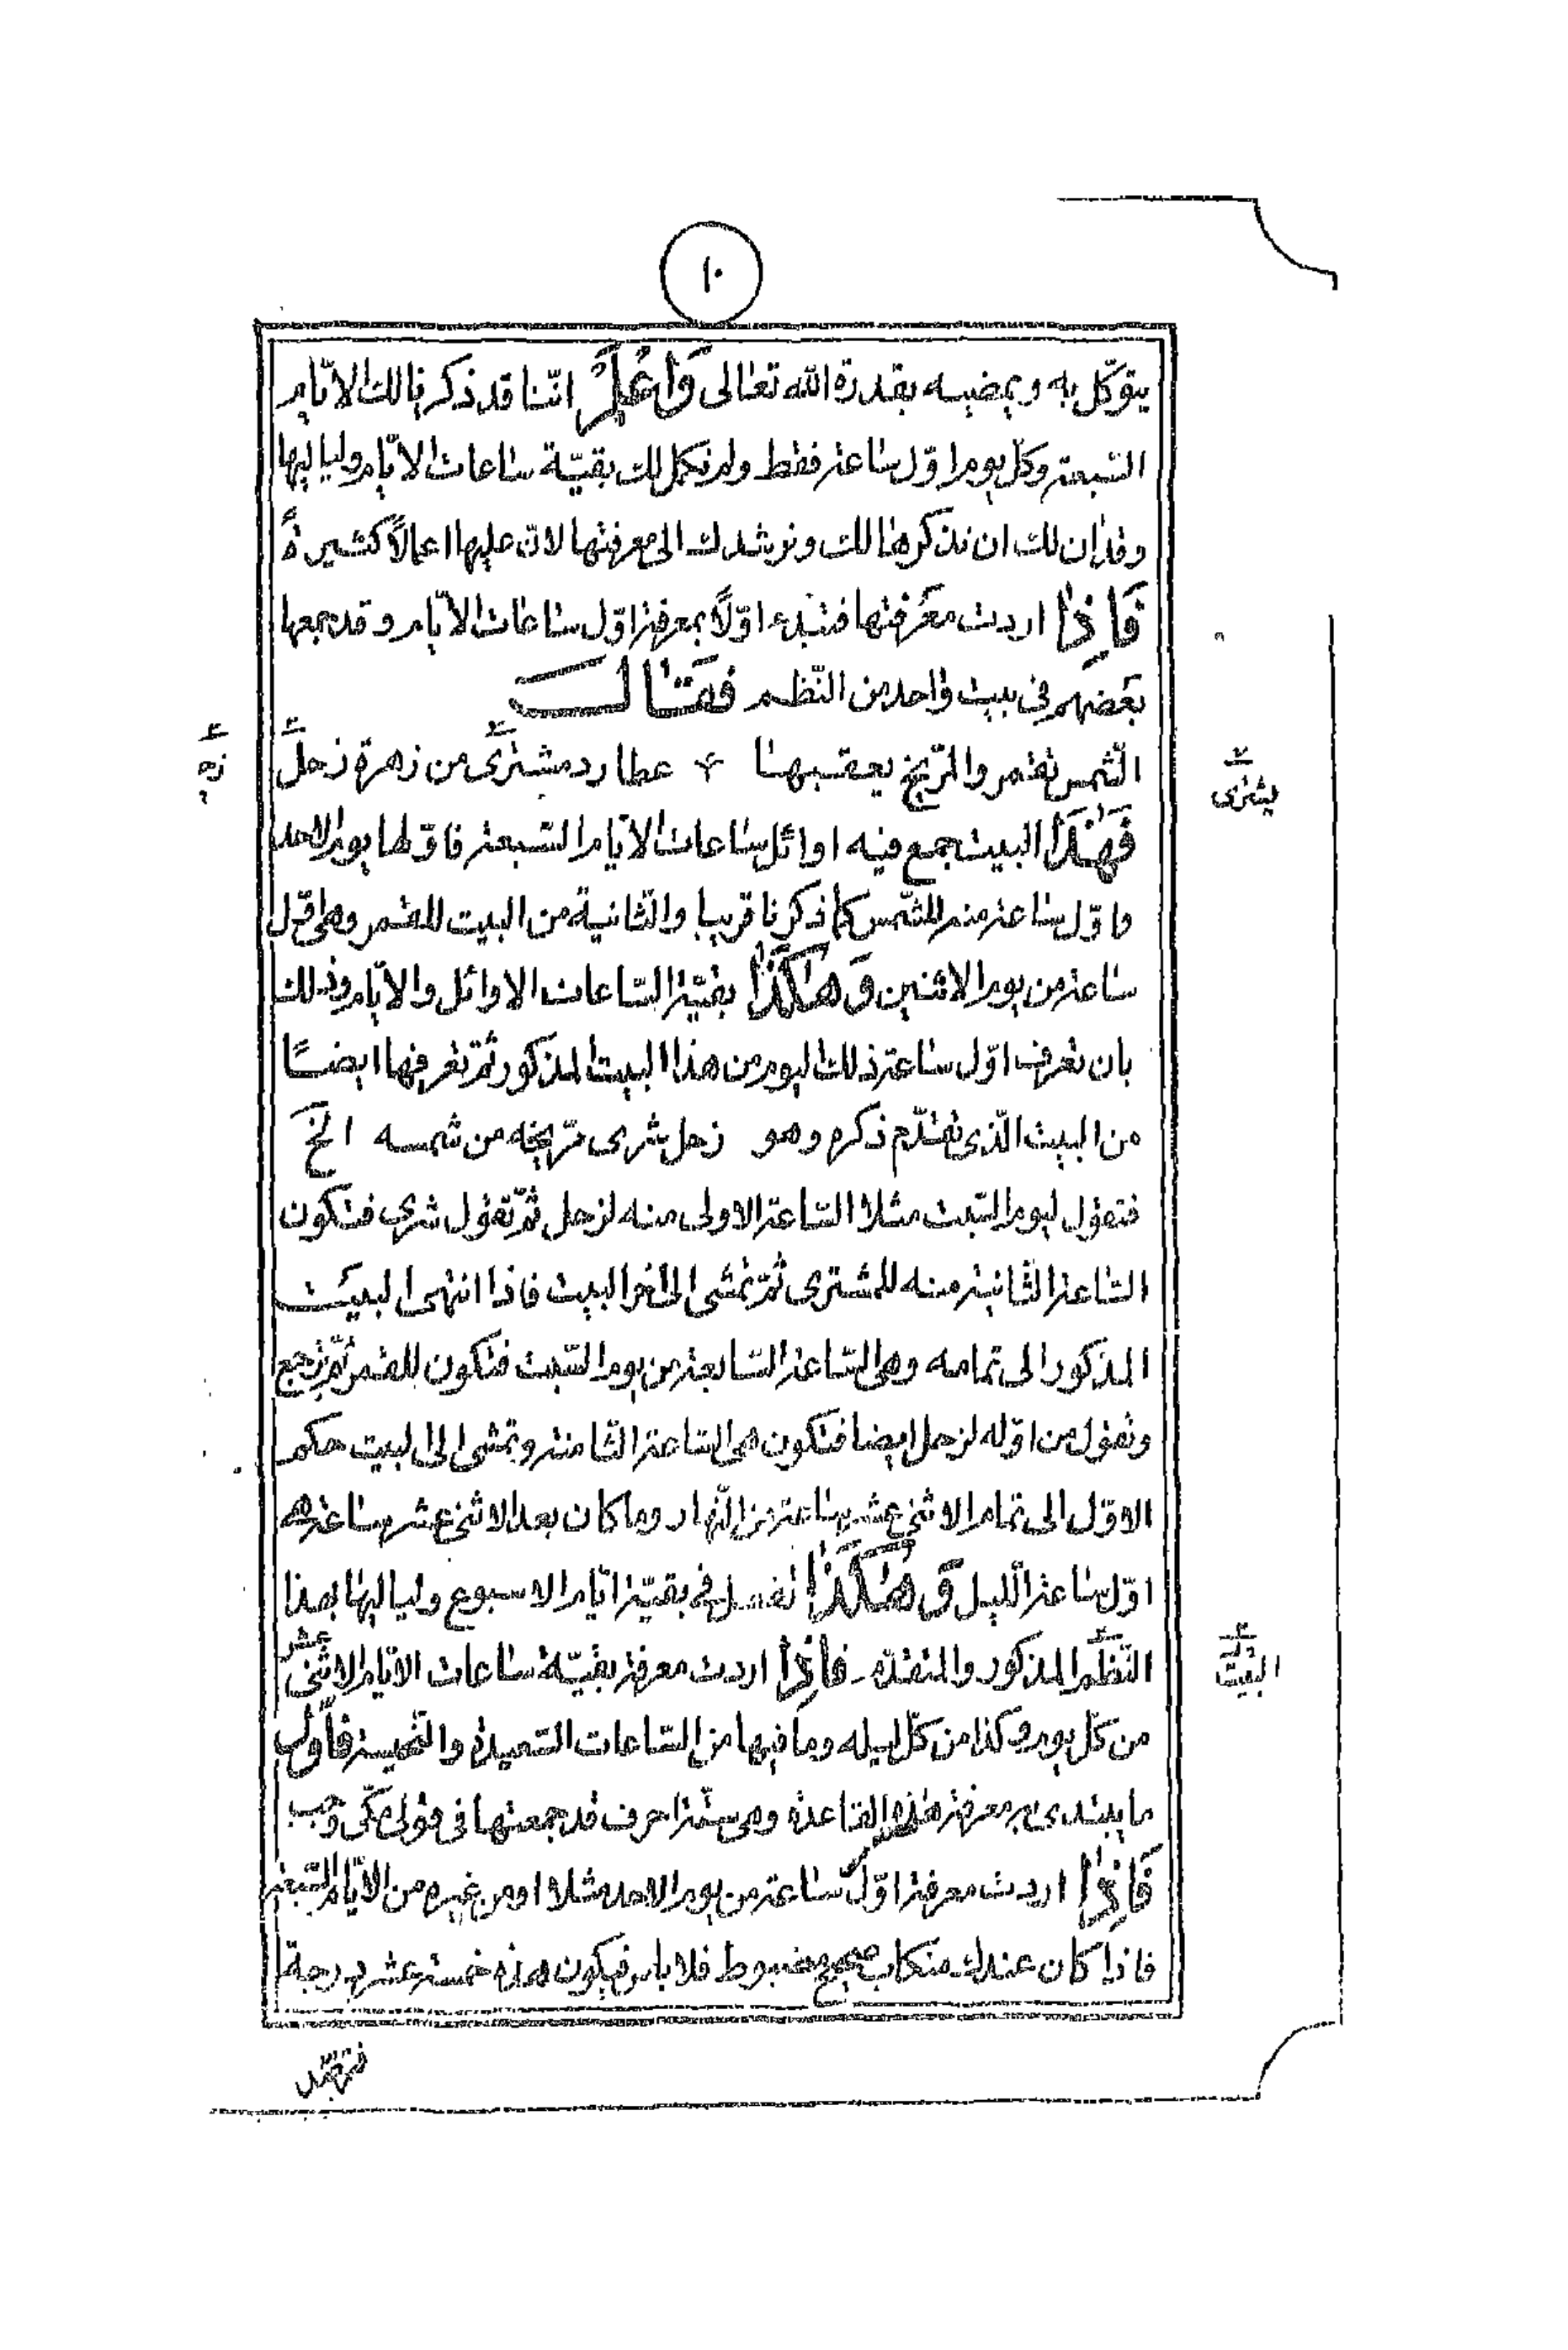 ١٠
يتوكل به ويمضيه بقدرة الله تعالى وَاعْلَمْ انّنا قد ذكرنا لك الايّام
السّبعة وكل يوم اوّل ساعة فقط ولم نكمل لك بقيّة ساعات الايّام ولياليها
وقد ان لك ان نذكرها لك ونرشدك الى معرفتها لانّ عليها اعمالاً كثيرةً
فَاِذا اردت معرفتها فتبدء اوّلاً بمعرفة اوّل ساعات الايّام وقد جمعها
بعضهم فى بيت واحد من النّظم فقال
الشّمس تقمر والمرّيخ يعقبها عطارد مشترى من زهرة زحل
يشترى
فَهٰذَا البيت جمع فيه اوائل ساعات الايّام السّبعة فاوّلها يوم الاحد
واوّل ساعة منه للشّمس كما ذكرنا قريبا والثّانية من البيت للقمر وهى اوّل
ساعة من يوم الاثنين وَهٰكَذَا بقيّة السّاعات الاوائل والايّام وذلك
بان تعرف اوّل ساعة ذلك اليوم من هذا البيت المذكور ثمّ تعرفها ايضًا
من البيت الّذى تقدّم ذكره وهو زحل شرى مرّيخه من شمسه الخ
فتقول ليوم السّبت مثلا السّاعة الاولى منه لزحل ثمّ تقول شرى فتكون
السّاعة الثّانية منه للمشترى ثمّ تمشى الى اخر البيت فاذا انتهى البيت
المذكور الى تمامه وهى السّاعة السّابعة من يوم السّبت فتكون للقمر ثمّ ترجع
وتقول من اوّله لزحل ايضا فتكون هى السّاعة الثّامنة وتمشى الى البيت حكم
الاوّل الى تمام الاثنى عشر ساعة من النّهار وما كان بعد الاثنى عشر ساعة هى
اوّل ساعة اللّيل وَهٰكَذَا تفعل فى بقيّة ايّام الاسبوع ولياليها بهذا
النّظم المذكور والمتقدّم فَاِذا اردت معرفة بقيّة ساعات الايّام الاثنى عشر
البيت
من كلّ يوم وكذا من كلّ ليله وما فيها من السّاعات السّعيدة والنّحيسة فاوّل
ما يبتدى به معرفة هذه القاعدة وهى ستّة احرف قد جمعتها فى قولى
فَاِذا اردت معرفة اوّل ساعة من يوم الاحد مثلا او من غيره من الايّام السّبعة
فاذا كان عندك منكاب صحيح مضبوط فلا باس فيكون هذه خمسة عشر درجة